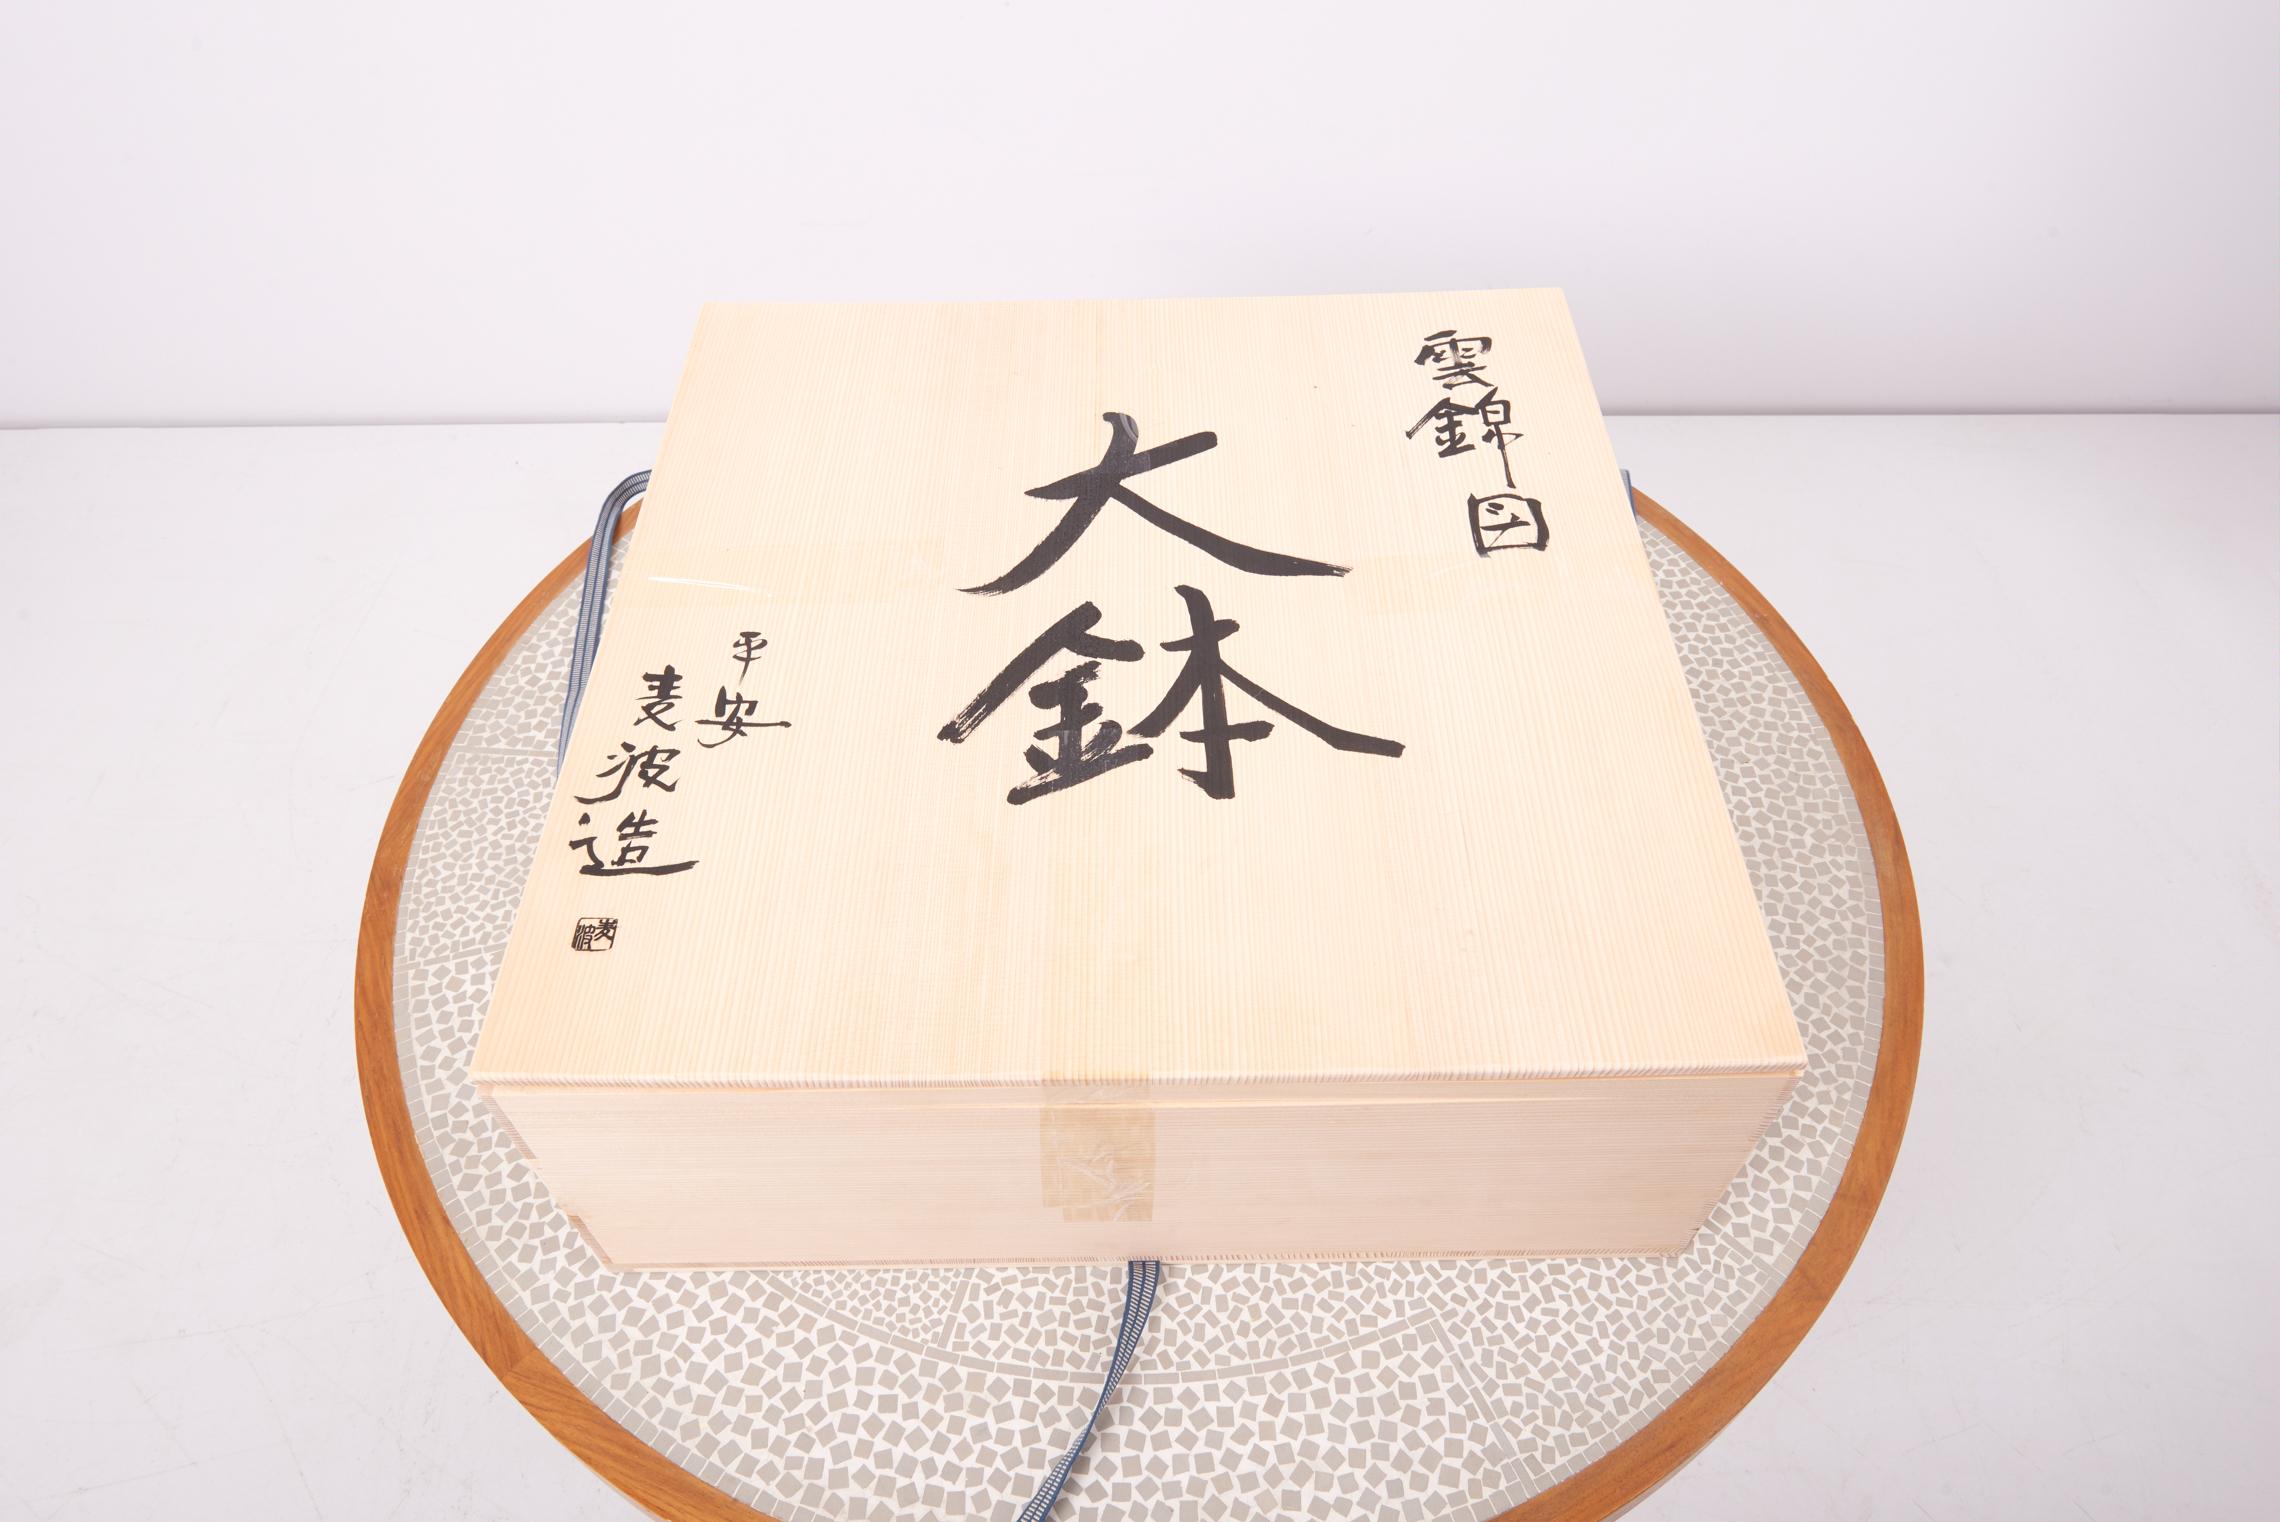 雲錦図
大鉢
平安
麦波造
麦波